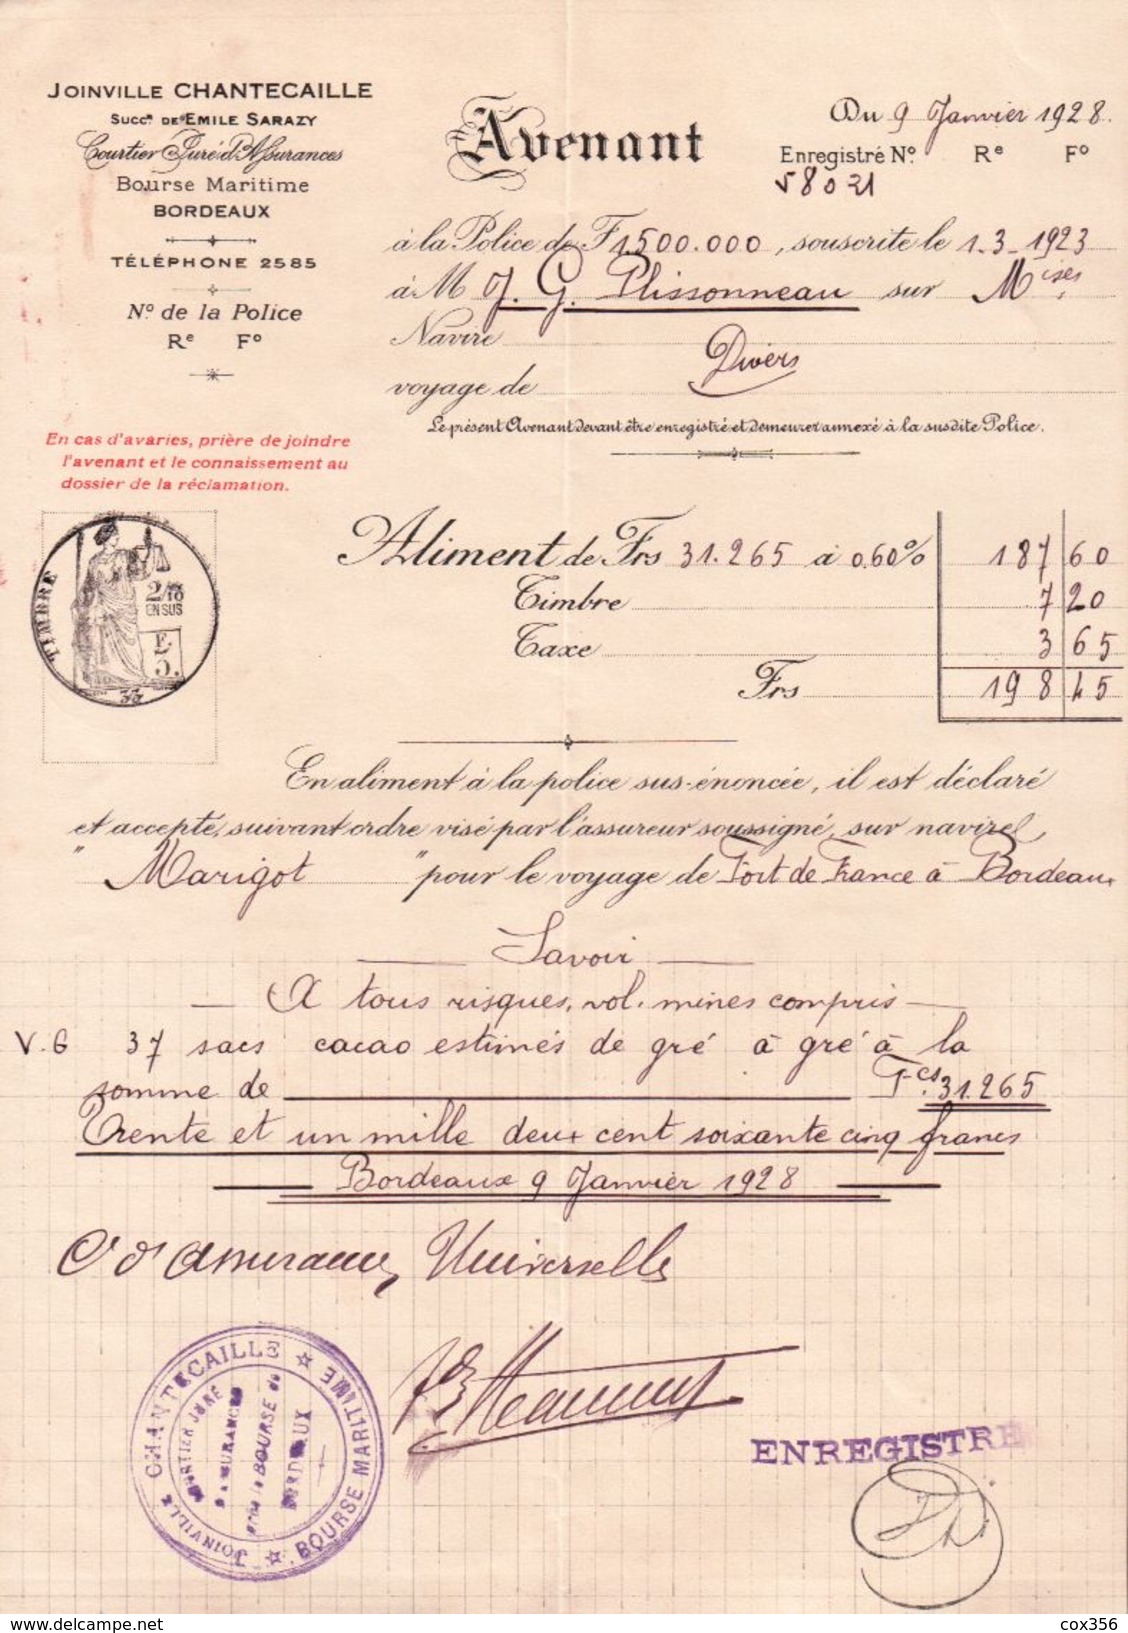 JOINVILLE CHANTECAILLE
SUCCR DE EMILE SARAZY
Courtier Juré d'Assurances
Bourse Maritime
BORDEAUX
TÉLÉPHONE 2585
No de la Police
Re Fo
En cas d'avaries, prière de joindre
l'avenant et le connaissement au
dossier de la réclamation.
Avenant
Du 9 Janvier 1928.
Enregistré No Re Fo
58021
à la Police de F 1.500.000, souscrite le 1-3-1923
à M J. G. Plissonneau sur Mises
Navire
Divers
voyage de
Le présent Avenant devant être enregistré et demeurer annexé à la susdite Police.
TIMBRE
2/10
EN SUS
E.
5.
33
Aliment de Frs 31.265 à 0.60% 187 60
Timbre 7 20
Taxe 3 65
Frs 198 45
En aliment à la police sus-énoncée, il est déclaré
et accepté, suivant ordre visé par l'assureur soussigné, sur navire
" Marigot " pour le voyage de Fort de France à Bordeaux
Savoir
A tous risques, vol. mines compris
V.G 37 sacs cacao estimés de gré à gré à la
somme de Fcs. 31.265
Trente et un mille deux cent soixante cinq francs
Bordeaux 9 Janvier 1928
Cie d'Assurances Universelles
JOINVILLE CHANTECAILLE
BOURSE MARITIME
COURTIER JURÉ
D'ASSURANCES
près la BOURSE de
BORDEAUX
ENREGISTRE
cox356